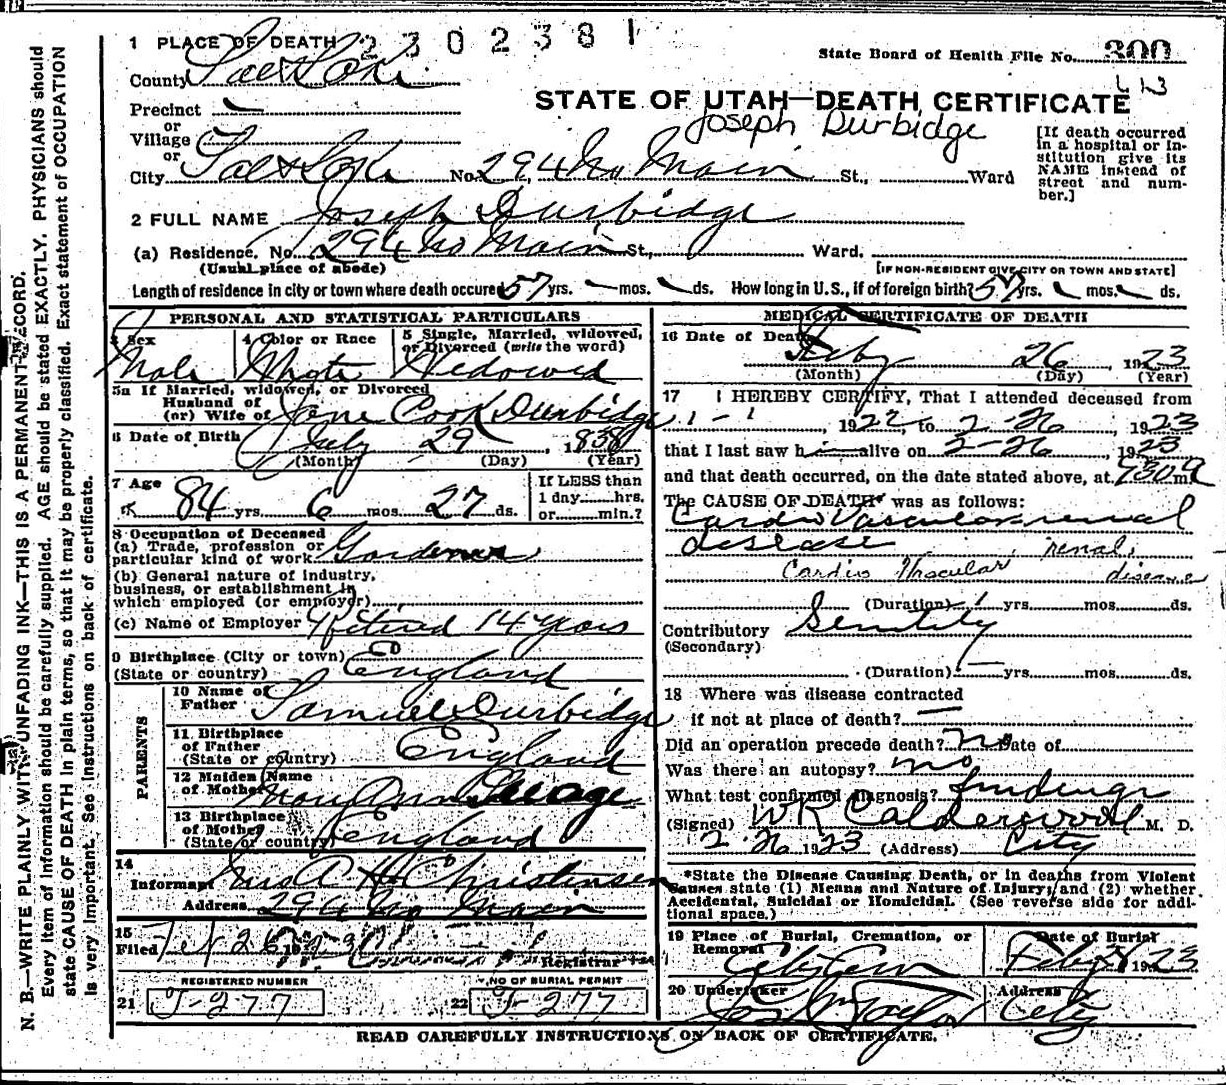 1 PLACE OF DEATH 2302381
State Board of Health File No. 300
County Salt Lake
Precinct —
or
Village
or
STATE OF UTAH—DEATH CERTIFICATE
Joseph Durbidge
[If death occurred in a hospital or institution give its NAME instead of street and number.]
City Salt Lake No. 294 No Main St., Ward
2 FULL NAME Joseph Durbidge
(a) Residence. No. 294 No Main St., Ward.
(Usual place of abode) [IF NON-RESIDENT GIVE CITY OR TOWN AND STATE]
Length of residence in city or town where death occured 57 yrs. — mos. — ds. How long in U.S., if of foreign birth? 57 yrs. — mos. — ds.
PERSONAL AND STATISTICAL PARTICULARS
3 Sex 4 Color or Race 5 Single, Married, widowed, or Divorced (write the word)
Male White Widowed
5a If Married, widowed, or Divorced
Husband of
(or) Wife of Jane Cook Durbidge
6 Date of Birth July 29 1838
(Month) (Day) (Year)
7 Age 84 yrs. 6 mos. 27 ds.
If LESS than
1 day hrs.
or min.?
8 Occupation of Deceased
(a) Trade, profession or
particular kind of work Gardener
(b) General nature of industry,
business, or establishment in
which employed (or employer)
(c) Name of Employer Retired 14 years
9 Birthplace (City or town)
(State or country) England
PARENTS
10 Name of
Father Samuel Durbidge
11 Birthplace
of Father
(State or country) England
12 Maiden Name
of Mother Mary Ann Savage
13 Birthplace
of Mother
(State or country) England
14
Informant Mrs A H Christensen
Address 294 No Main
15
Filed Feb 26 1923
Registrar
REGISTERED NUMBER
21 J-277
NO OF BURIAL PERMIT
22 J-277
MEDICAL CERTIFICATE OF DEATH
16 Date of Death
Feby 26, 1923
(Month) (Day) (Year)
17 I HEREBY CERTIFY, That I attended deceased from
1-1, 1922, to 2-26, 1923
that I last saw h im alive on 2-26, 1923
and that death occurred, on the date stated above, at 730 a m.
The CAUSE OF DEATH* was as follows:
Cardio Vascular renal
disease renal
Cardio Vascular disease
(Duration) 1 yrs. mos. ds.
Contributory Senility
(Secondary)
(Duration) — yrs. mos. ds.
18 Where was disease contracted
if not at place of death? —
Did an operation precede death? no Date of
Was there an autopsy? no
What test confirmed diagnosis? findings
(Signed) WR Calderwood M. D.
2 26 1923 (Address) City
*State the Disease Causing Death, or in deaths from Violent
Causes state (1) Means and Nature of Injury; and (2) whether
Accidental, Suicidal or Homicidal. (See reverse side for addi-
tional space.)
19 Place of Burial, Cremation, or
Removal City Cem
Date of Burial
Feby 28 1923
20 Undertaker Jos Wm Taylor
Address City
READ CAREFULLY INSTRUCTIONS ON BACK OF CERTIFICATE.
N. B.—WRITE PLAINLY WITH UNFADING INK—THIS IS A PERMANENT RECORD.
Every item of information should be carefully supplied. AGE should be stated EXACTLY. PHYSICIANS should
state CAUSE OF DEATH in plain terms, so that it may be properly classified. Exact statement of OCCUPATION
is very important. See Instructions on back of certificate.